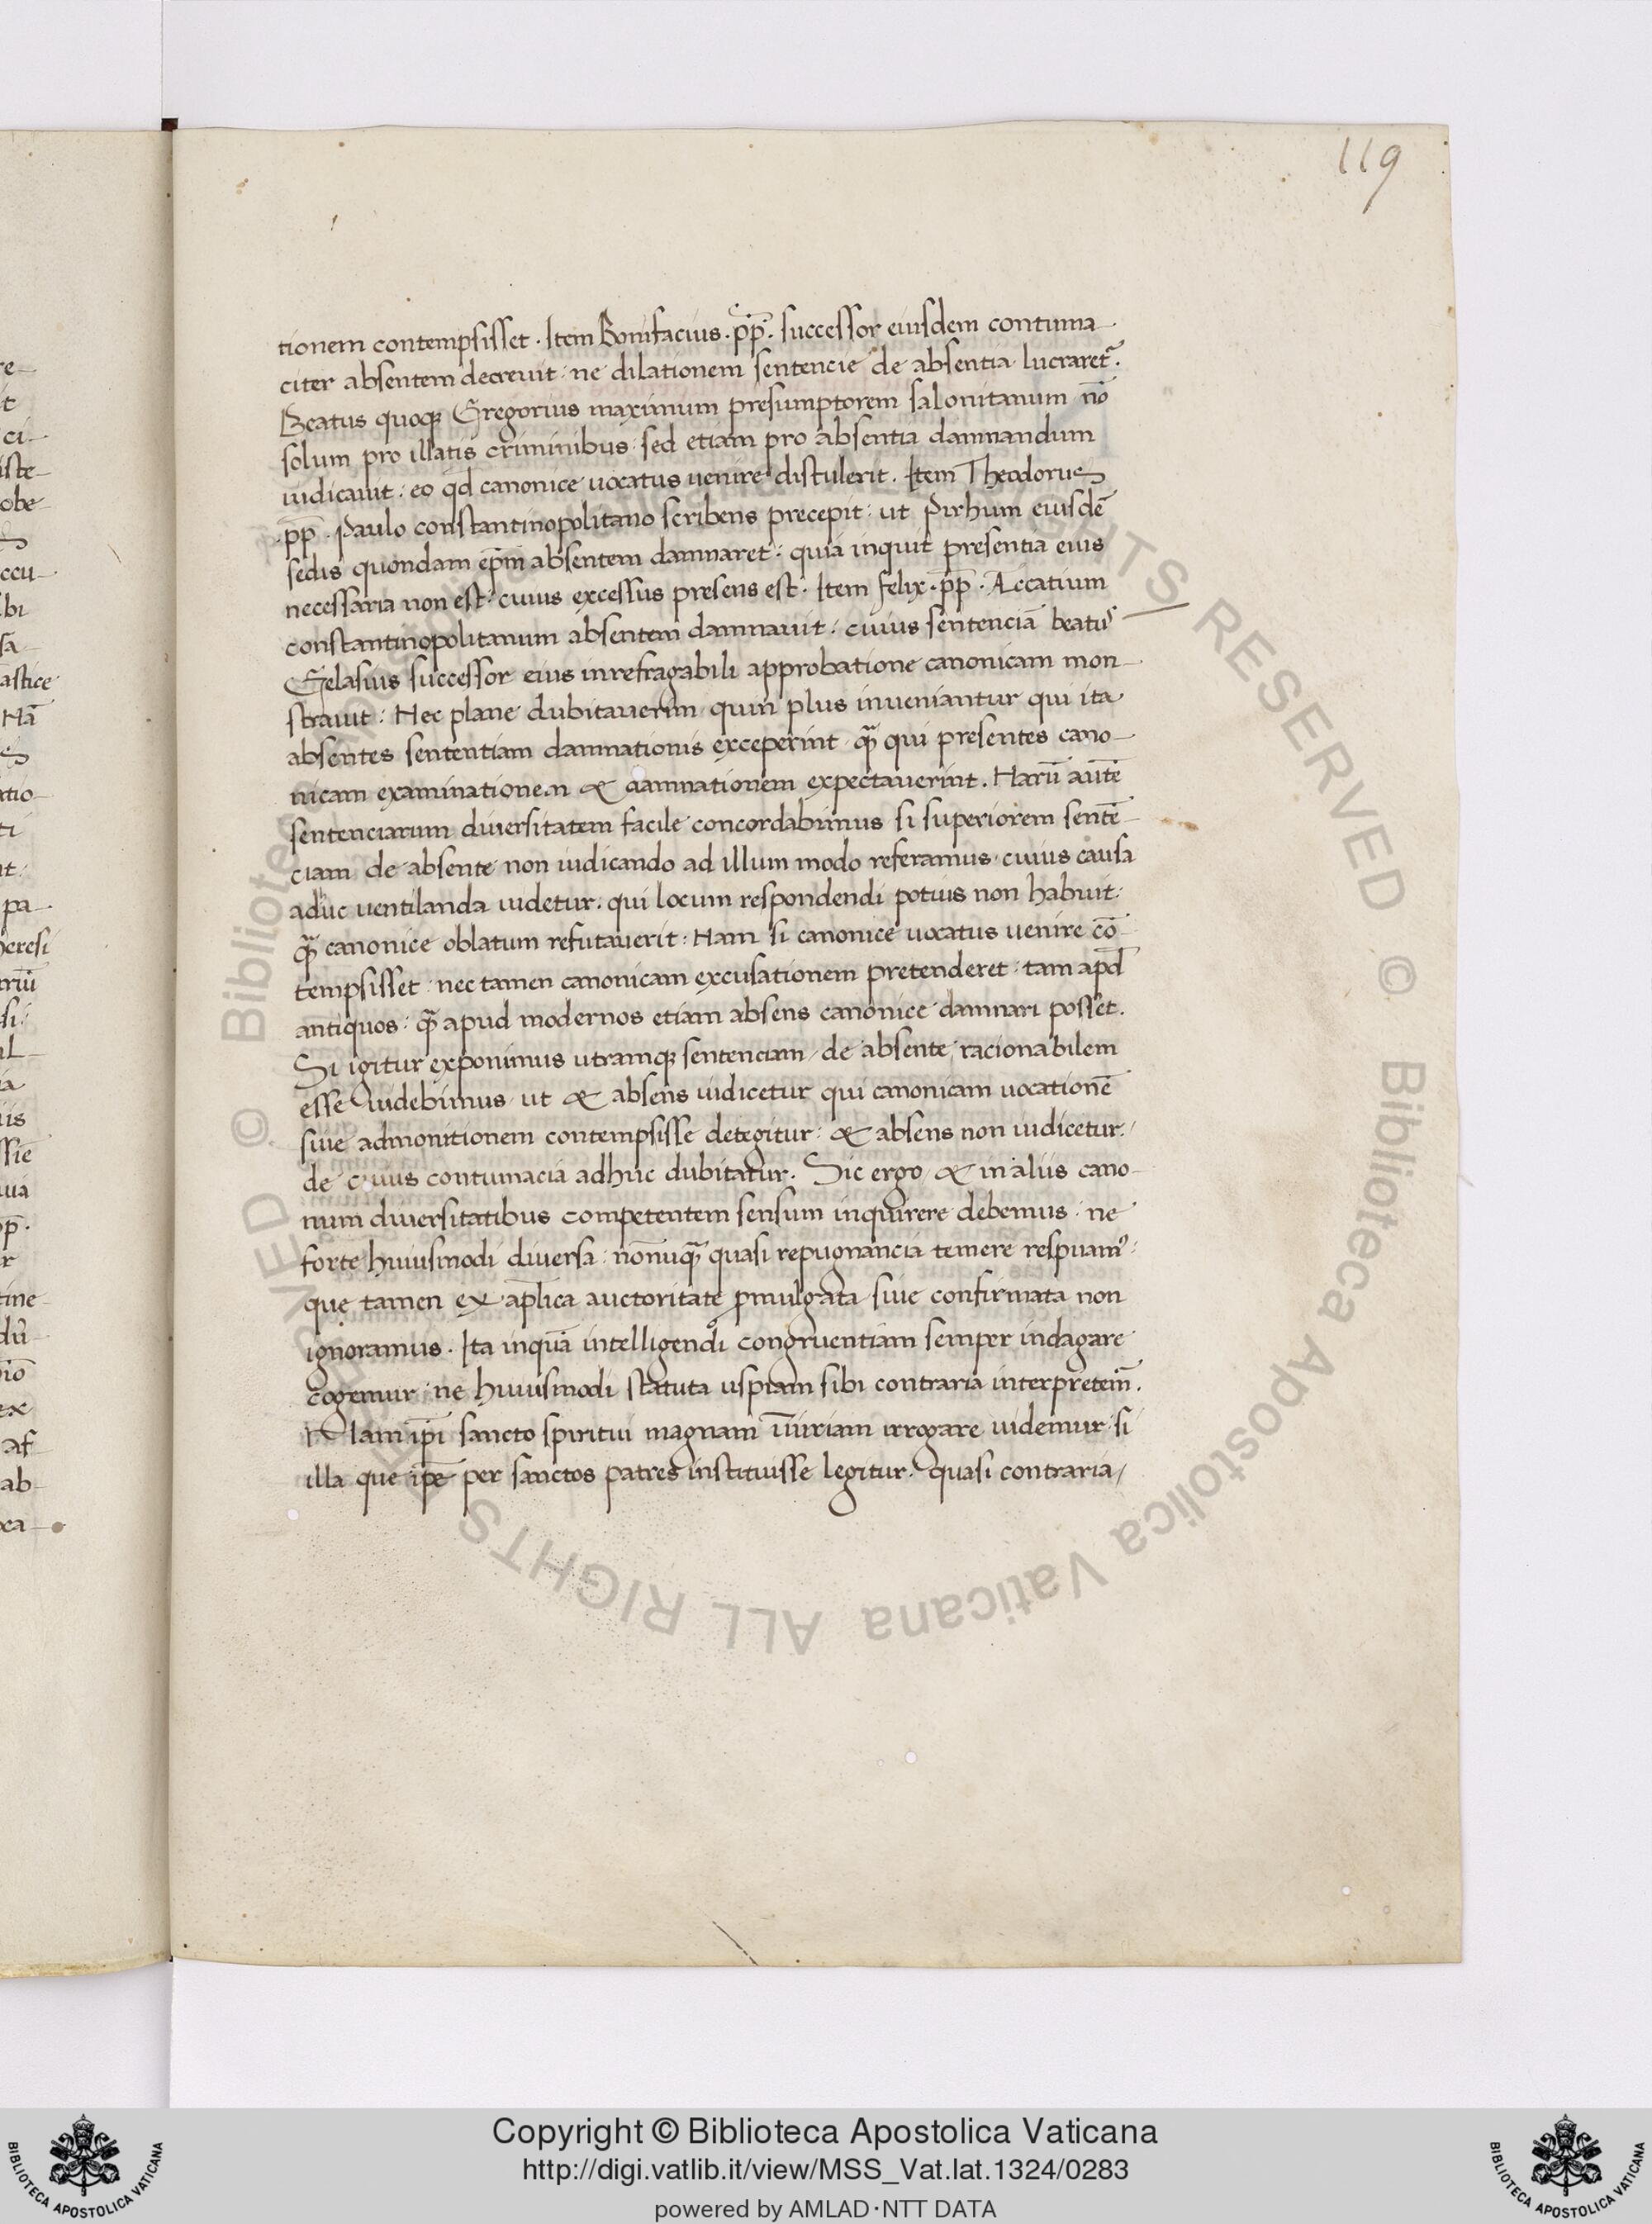 119
tionem contempsisset. Item Bonifacius .pp̄. successor eiusdem contuma-
citer absentem decrevit: ne dilationem sentencie de absentia lucraret᷑.
Beatus quoqꝫ Gregorius maximum presumptorem salonitanum nō
solum pro illatis criminibus: sed etiam pro absentia damnandum
iudicavit: eo qd̄ canonice vocatus venire distulerit. Item Theodorus
.pp̄. Paulo constantinopolitano scribens precepit: ut Pirhum eiusdē
sedis quondam ep̄m absentem damnaret: quia inquit presentia eius
necessaria non est: cuius excessus presens est. Item felix .pp̄. Accatium
constantinopolitanum absentem damnavit: cuius sentenciā beatus
Gelasius successor eius inrefragabili approbatione canonicam mon-
stravit: Nec plane dubitaverim quin plus inveniantur qui ita
absentes sententiam damnationis exceperint qua᷑ qui presentes cano-
nicam examinationem & damnationem expectaverint. Harū autē
sentenciarum diversitatem facile concordabimus si superiorem sentē-
ciam de absente non iudicando ad illum modo referamus cuius causa
aduc ventilanda videtur. qui locum respondendi potius non habuit:
qua᷑ canonice oblatum refutaverit: Nam si canonice vocatus venire cō-
tempsisset nec tamen canonicam excusationem pretenderet: tam apd̄
antiquos: qua᷑ apud modernos etiam absens canonice damnari posset.
Si igitur exponimus utramqꝫ sentenciam de absente racionabilem
esse videbimus ut & absens iudicetur qui canonicam vocationē
sive admonitionem contempsisse detegitur: & absens non iudicetur:
de cuius contumacia adhuc dubitatur. Sic ergo & in aliis cano-
num diversitatibus competentem sensum inquirere debemus: ne
forte huiusmodi diversa: nōnuqua᷑ quasi repugnancia temere respuam᷒:
quę tamen ex ap̄lica auctoritate ꝓmulgata sive confirmata non
ignoramus. Ita inquā intelligendi congruentiam semper indagare
cogemur: ne huiusmodi statuta uspiam sibi contraria interpretem̄.
Nam ip̄i sancto spiritui magnam iūriam irrogare videmur si
illa que ip̄e per sanctos patres instituisse legitur. quasi contraria
© Biblioteca Apostolica Vaticana ALL RIGHTS RESERVED © Biblioteca Apostolica Vaticana ALL RIGHTS RESERVED
Copyright © Biblioteca Apostolica Vaticana
http://digi.vatlib.it/view/MSS_Vat.lat.1324/0283
powered by AMLAD·NTT DATA
BIBLIOTECA APOSTOLICA VATICANA
BIBLIOTECA APOSTOLICA VATICANA